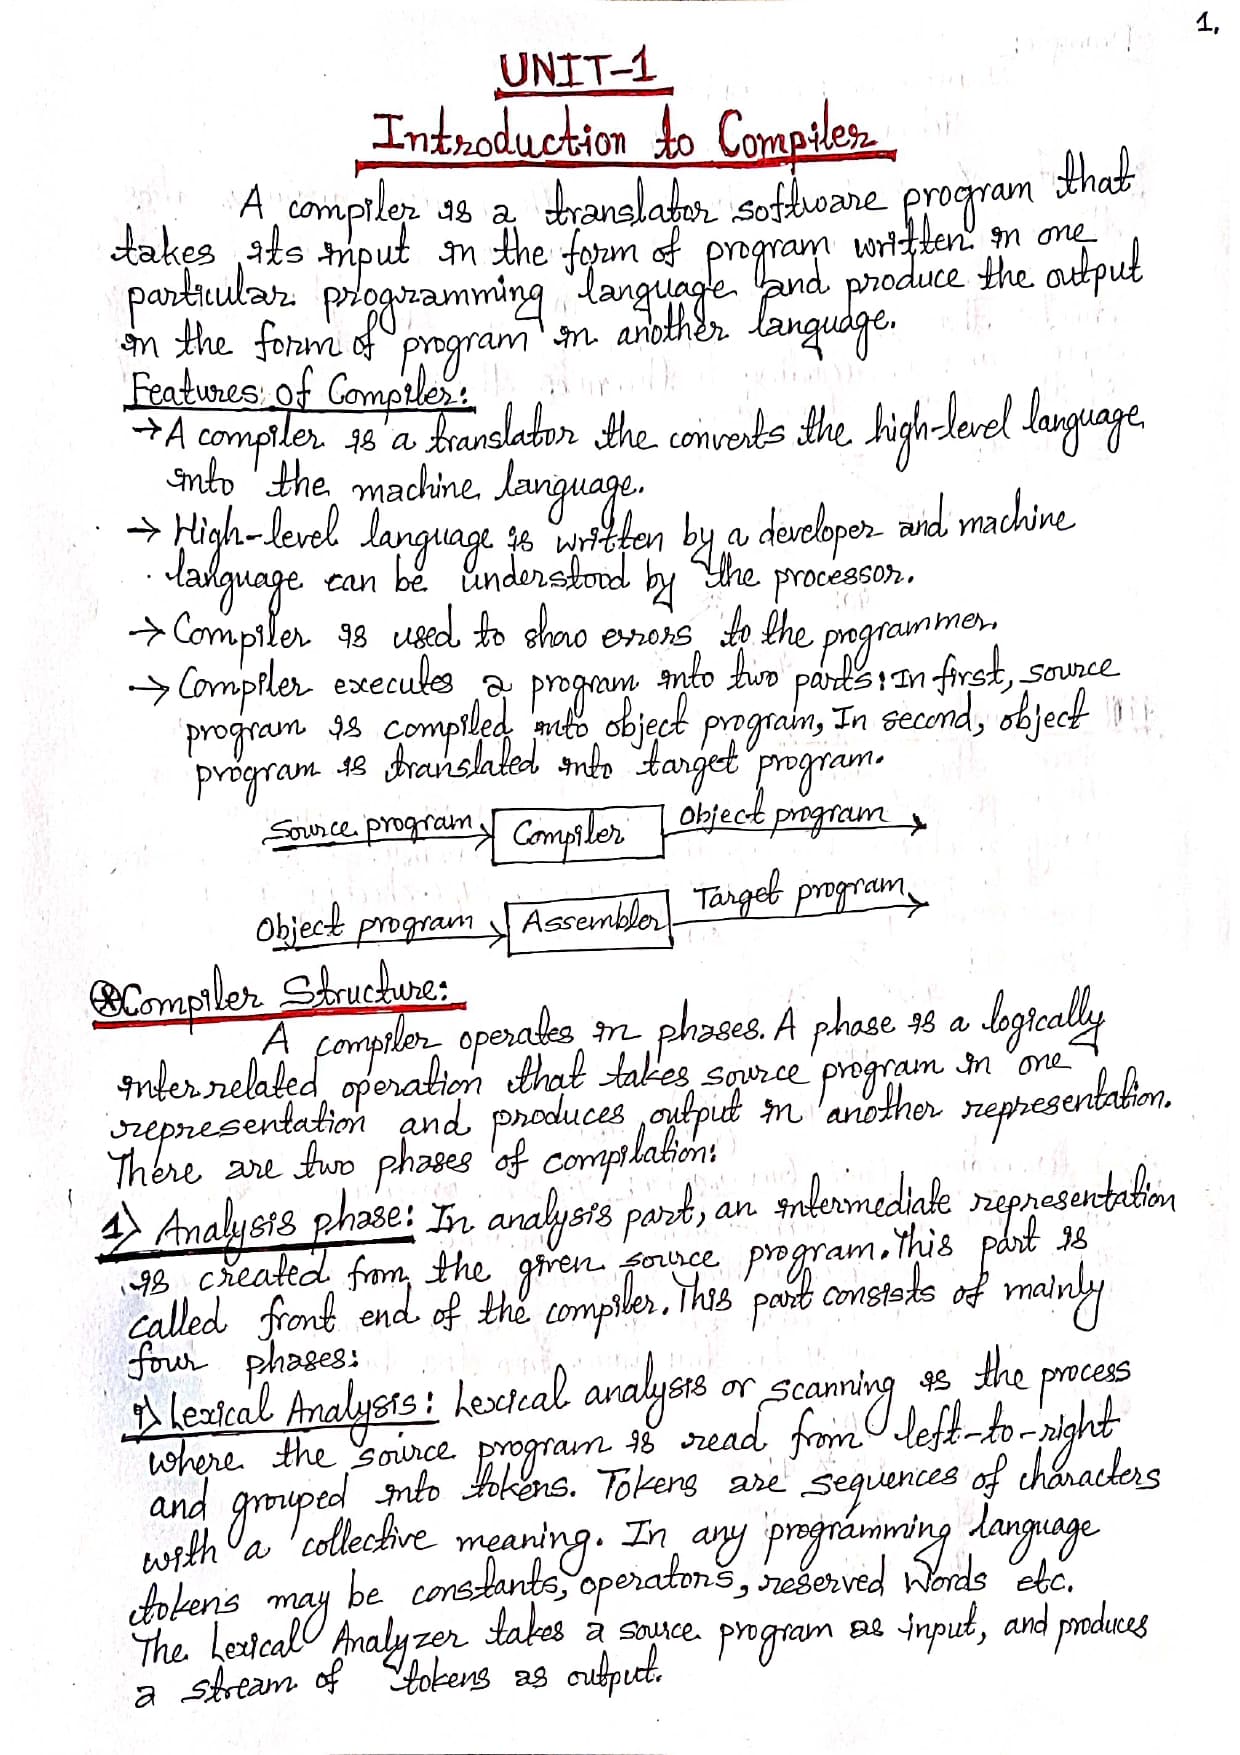 1.
UNIT-1
Introduction to Compiler
A compiler is a translator software program that
takes its input in the form of program written in one
particular programming language and produce the output
in the form of program in another language.
Features of Compiler:
→A compiler is a translator the converts the high-level language
into the machine language.
→ High-level language is written by a developer and machine
language can be understood by the processor.
→ Compiler is used to show errors to the programmer.
→ Compiler executes a program into two parts: In first, source
program is compiled into object program, In second, object
program is translated into target program.
Source program Compiler Object program
Object program Assembler Target program
⊛Compiler Structure:
A compiler operates in phases. A phase is a logically
interrelated operation that takes source program in one
representation and produces output in another representation.
There are two phases of compilation:
1) Analysis phase: In analysis part, an intermediate representation
is created from the given source program. This part is
called front end of the compiler. This part consists of mainly
four phases:
i) Lexical Analysis: Lexical analysis or scanning is the process
where the source program is read from left-to-right
and grouped into tokens. Tokens are sequences of characters
with a collective meaning. In any programming language
tokens may be constants, operators, reserved words etc.
The Lexical Analyzer takes a source program as input, and produces
a stream of tokens as output.